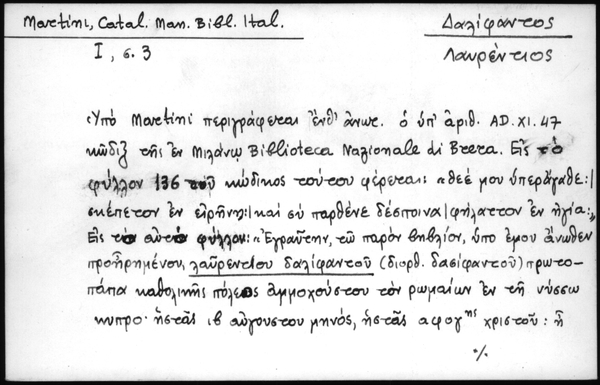 Martini, Catal. Man. Bibl. Ital.
Δαλίφαντος
I, σ. 3
Λαυρέντιος
Ὑπὸ Martini περιγράφεται ἔνθ' ἀνωτ. ὁ ὑπ' ἀριθ. AD. XI. 47
κῶδιξ τῆς ἐν Μιλάνῳ Biblioteca Nazionale di Brera. Εἰς τὸ
φύλλον 136 τοῦ κώδικος τούτου φέρεται: «θεέ μου ὑπεράγαθε:|
σκέπετον ἐν εἰρήνη:|καὶ σὺ παρθένε δέσποινα|φήλαττον ἐν ηγία:»
Εἰς τὸ αὐτὸ φύλλον: «Ἐγράυτην, τῶ παρὸν βηβλίον, ὑπο ἐμου ἄνωθεν
προηρημένου, λαῦρεντίου δαλίφαντοῦ (διορθ. δασίφαντοῦ) πρωτο-
πάπα καθολικῆς πόλεος ἀμμοχούστου τὸν ρωμαίων ἐν τῆ νύσσω
κυπρο· ἡστὰς ιβ αὔγουστου μηνός, ἡστὰς αφογης χριστοῦ: ἡ
·/.